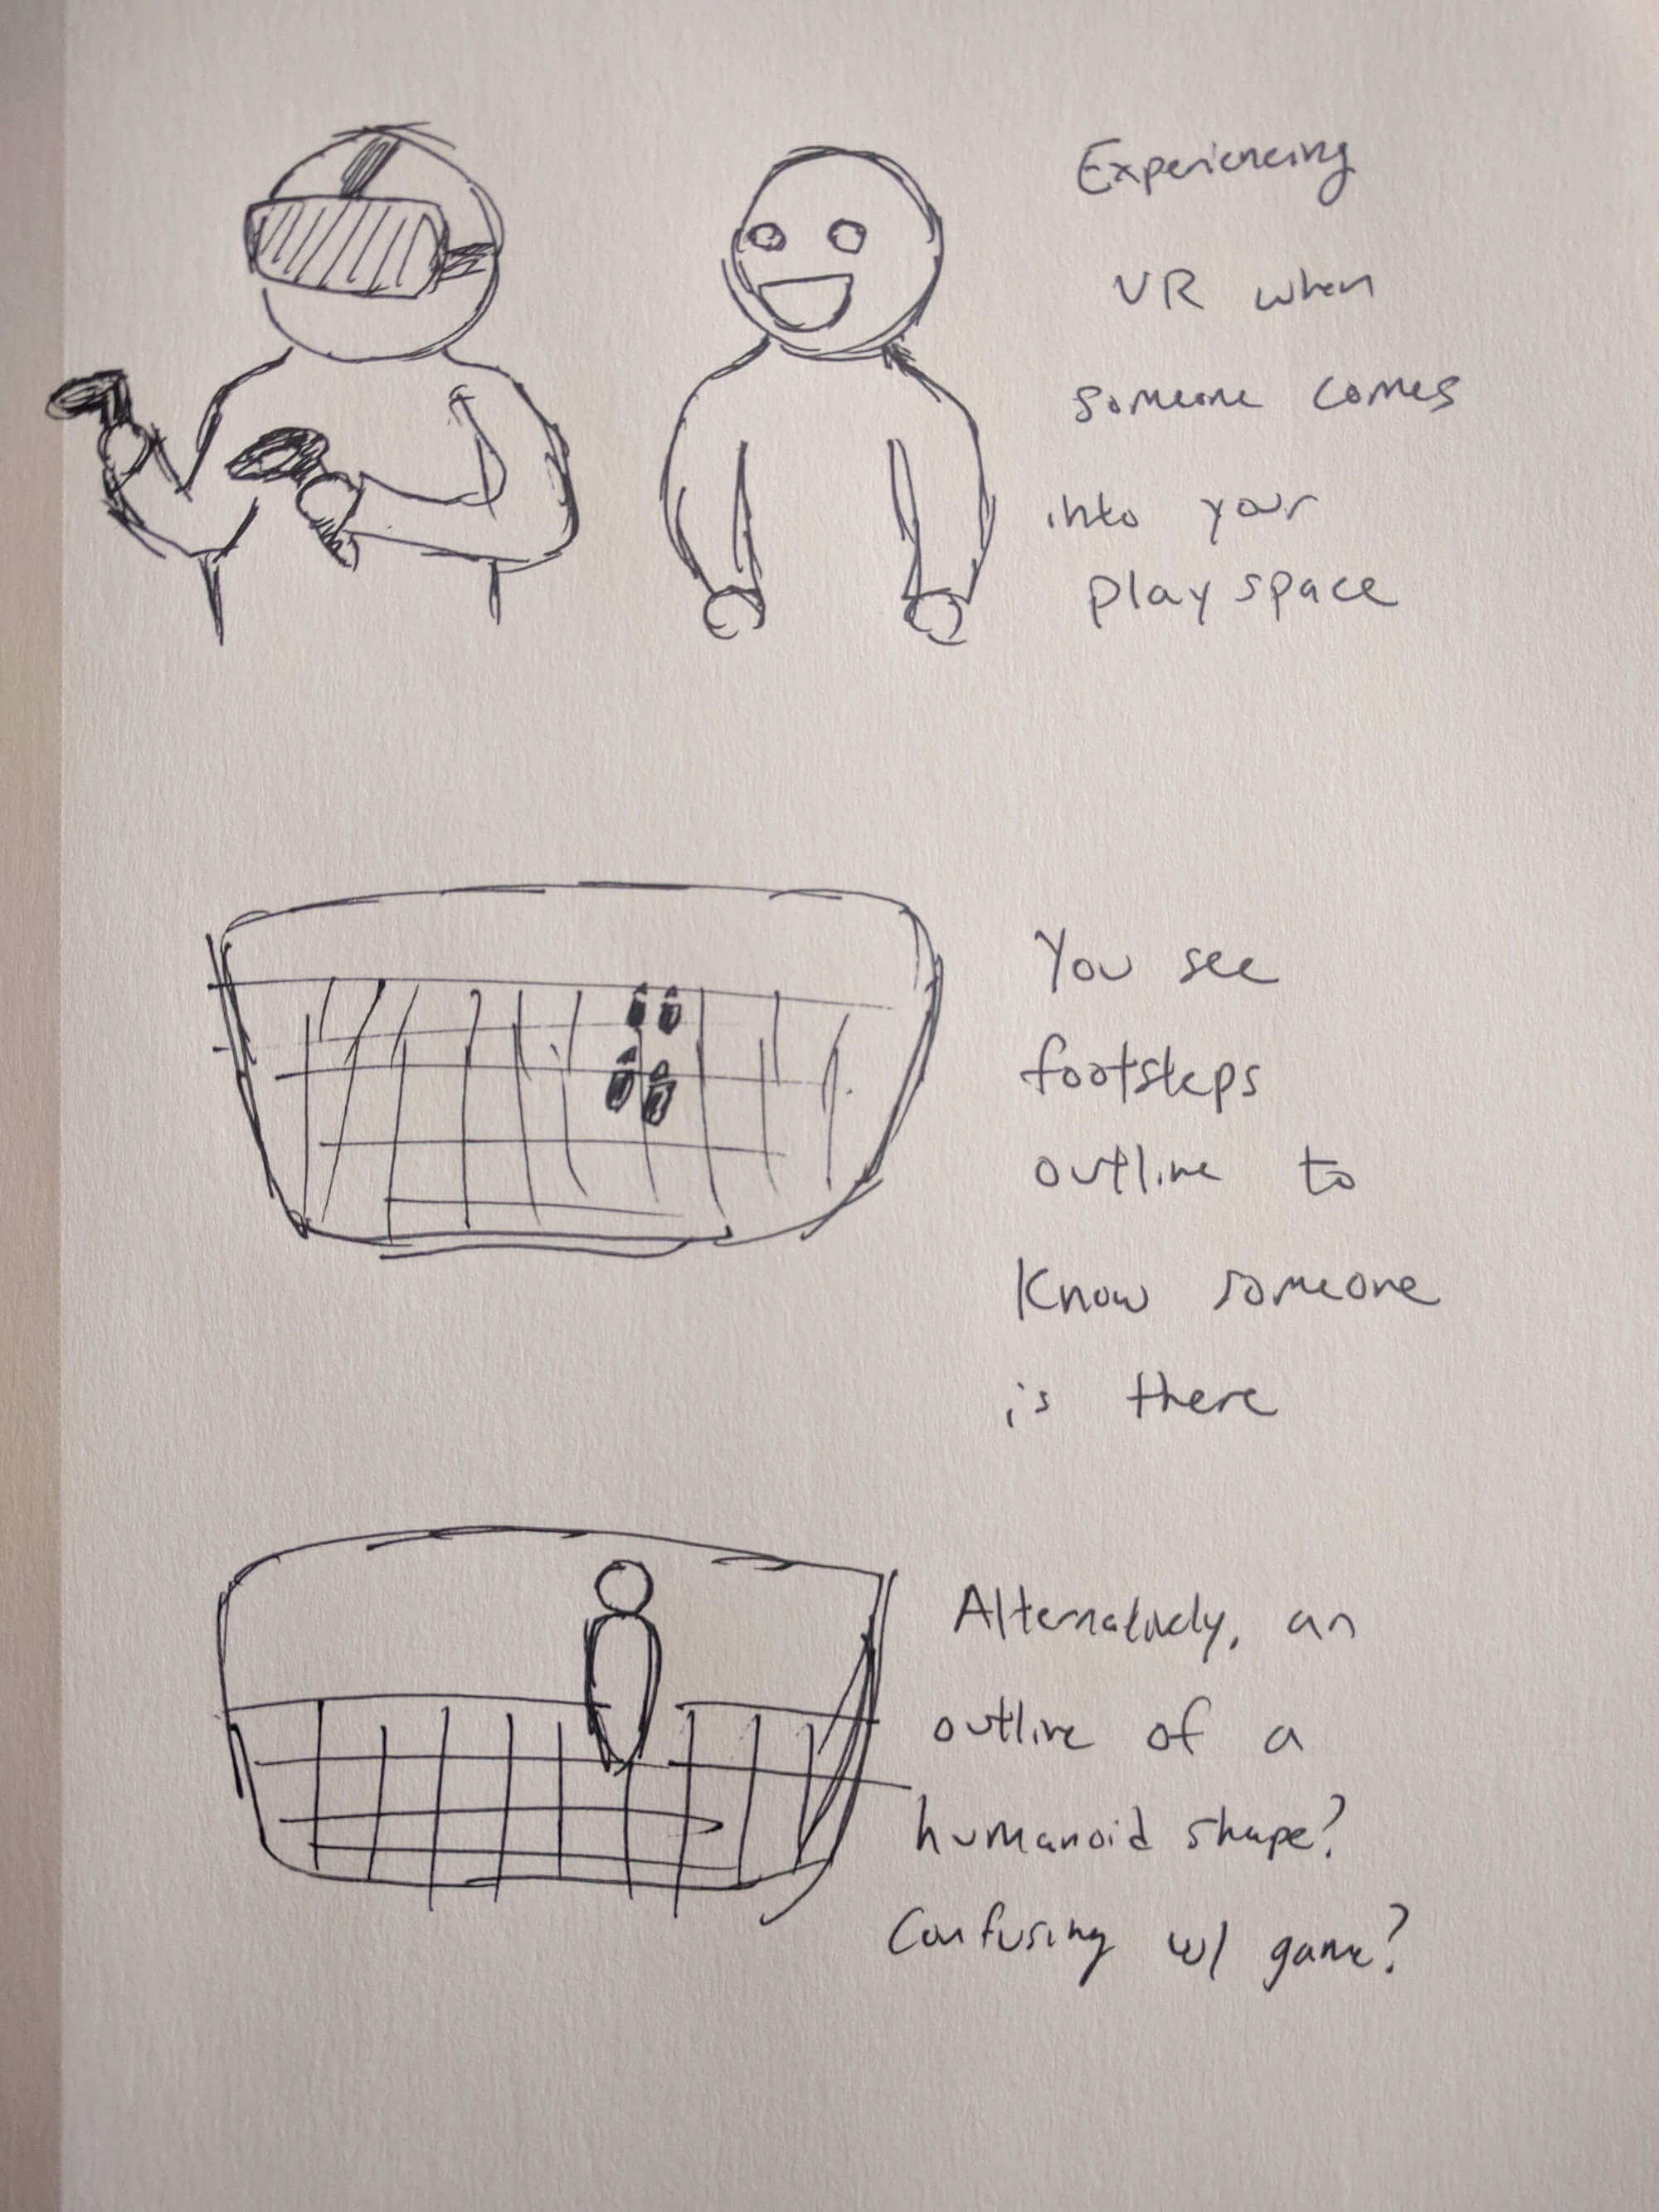 Experiencing
VR when
someone comes
into your
play space
You see
footsteps
outline to
Know someone
is there
Alternatively, an
outline of a
humanoid shape?
Confusing w/ game?